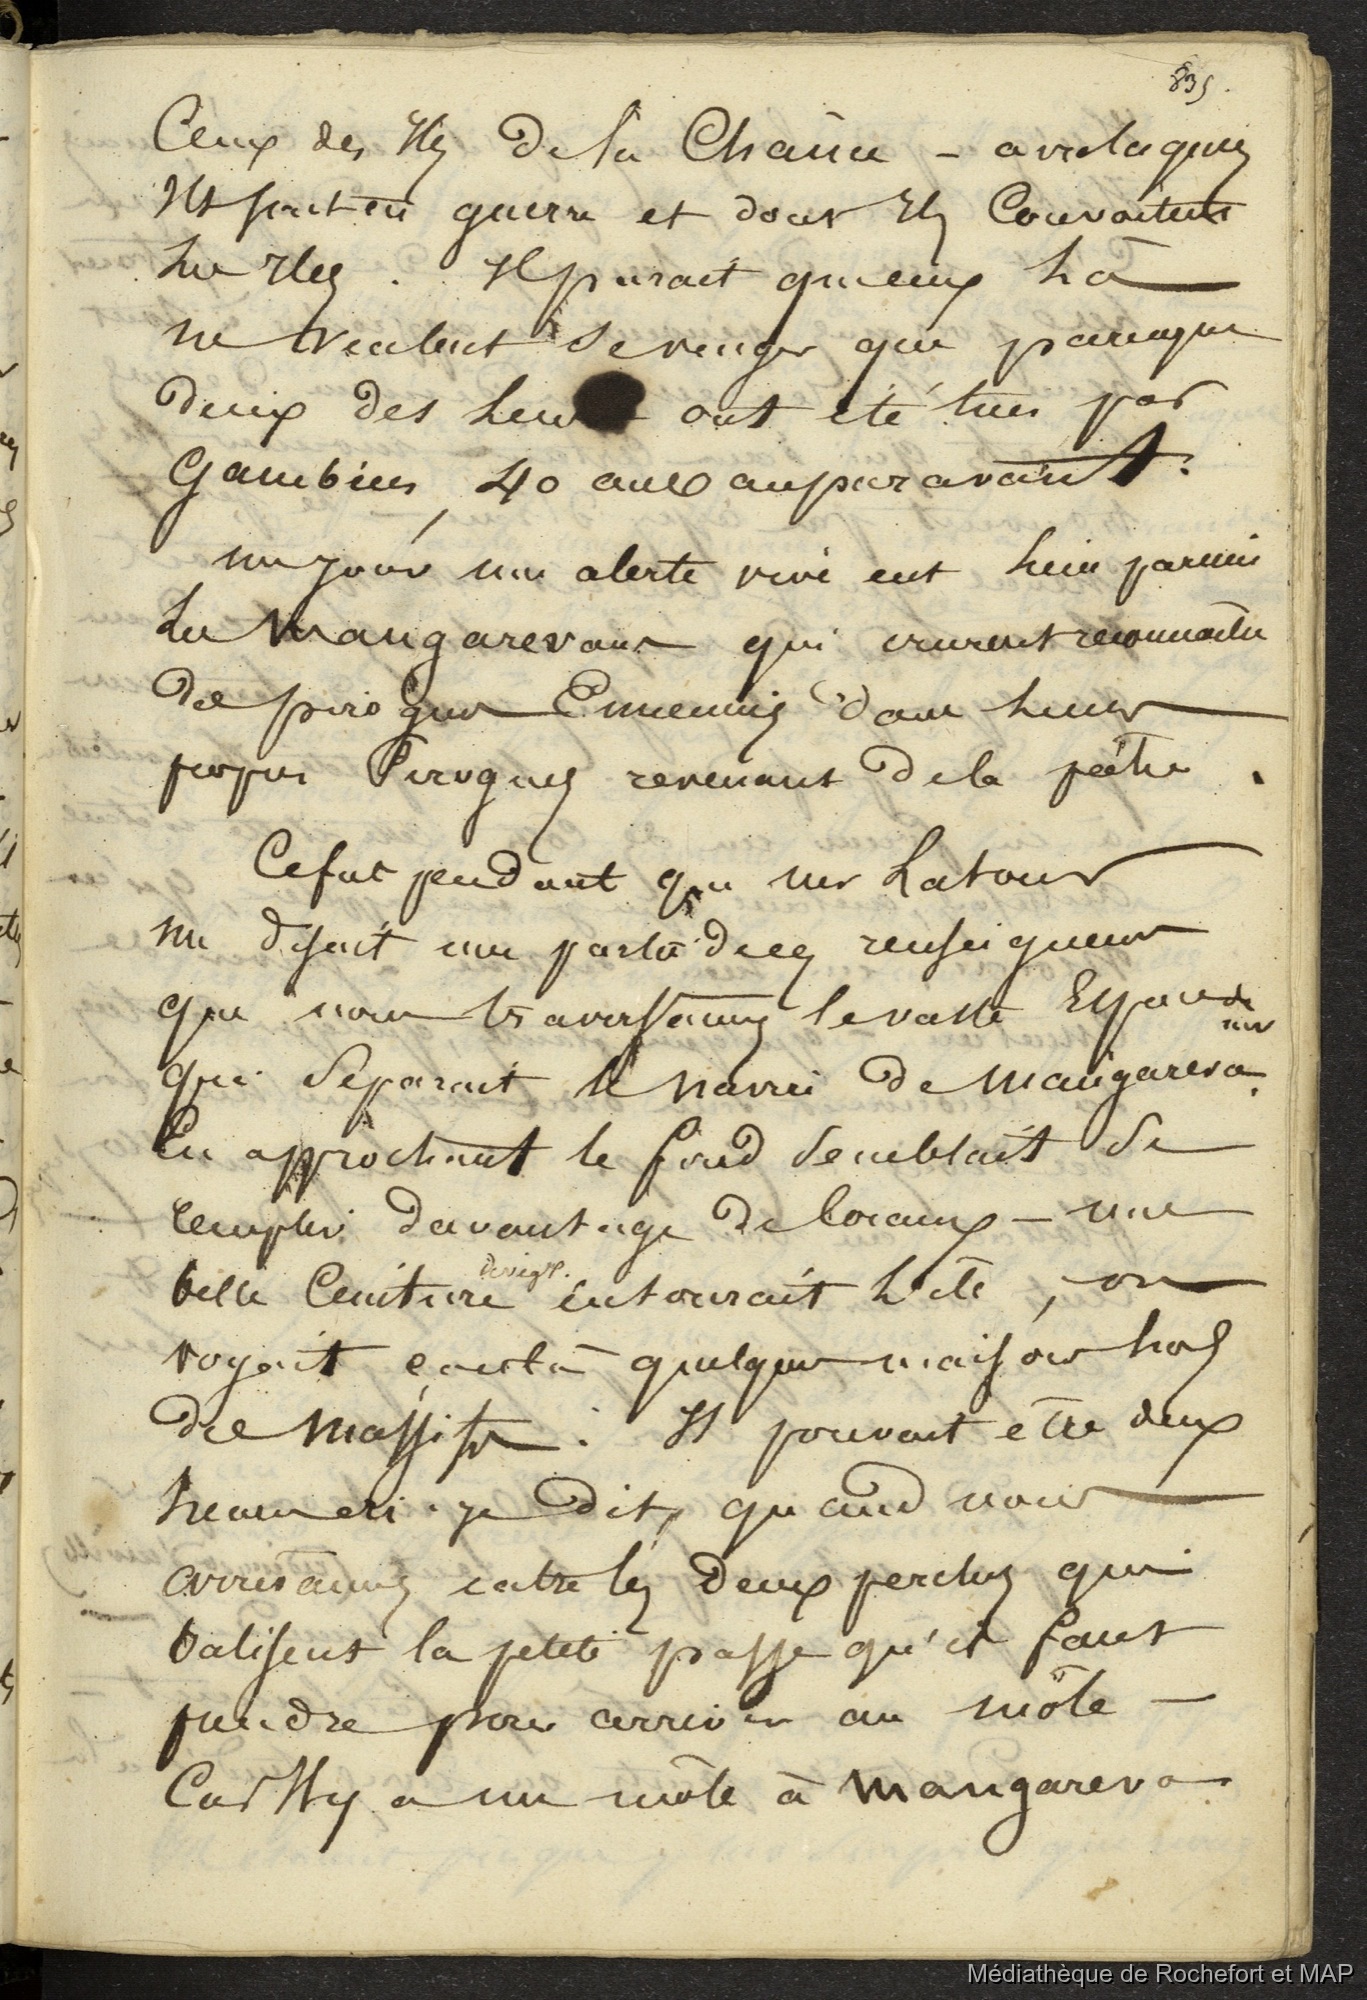 835.
Ceux des Iles de la Chaîne – avec laquelle
Ils sont en guerre et dont Ils Convoitent
les Iles. Il parait que ceux là
ne veulent se venger que parceque
deux des leurs ont été tués par
Gambiers, 40 ans auparavant.
un jour une alerte vive eut lieu parmi
les Mangarevans qui crurent reconnaître
des pirogues Ennemies dans leurs
propres Pirogues revenant de la pêche.
Ce fut pendant que mr Latour
me disait une partie de ces renseignemts
que nous traversames le vaste Espace de
mer
qui séparait le navire de Mangareva.
En approchant le fond semblait se
remplir davantage de Coraux – une
belle Ceinture entourait l'ile, on
voyait ca et là quelques maisons hors
des Massifs. Il pouvait être deux
heures je dit, quand nous
arrivames entre les deux perches qui
balisent la petite passe qu'il faut
prendre pour arriver au môle –
Car Il y a un môle à Mangareva
Médiathèque de Rochefort et MAP